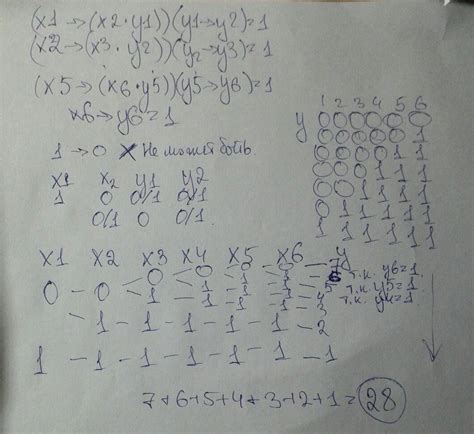 (x1→(x2·y1))(y1→y2)=1
(x2→(x3·y2))(y2→y3)=1
(x5→(x6·y5))(y5→y6)=1
x6→y6=1
1→0 X Не может быть.
x1 x2 y1 y2
1 0 0/1 0/1
0/1 0 0/1
1 2 3 4 5 6
y 0 0 0 0 0 0
0 0 0 0 0 1
0 0 0 0 1 1
0 0 0 1 1 1
0 0 1 1 1 1
0 1 1 1 1 1
1 1 1 1 1 1
x1 x2 x3 x4 x5 x6 y
0 - 0 < 0 < 0 < 0 < 0 - 7
1 - 1 - 1 - 1 - 4
1 - 1 - 1 - 1 - 3
- 1 - 1 - 1 - 1 - 1 - 2
1 - 1 - 1 - 1 - 1 - 1 - 1
т.к. y6=1
т.к. y5=1
т.к. y4=1
7+6+5+4+3+2+1=28